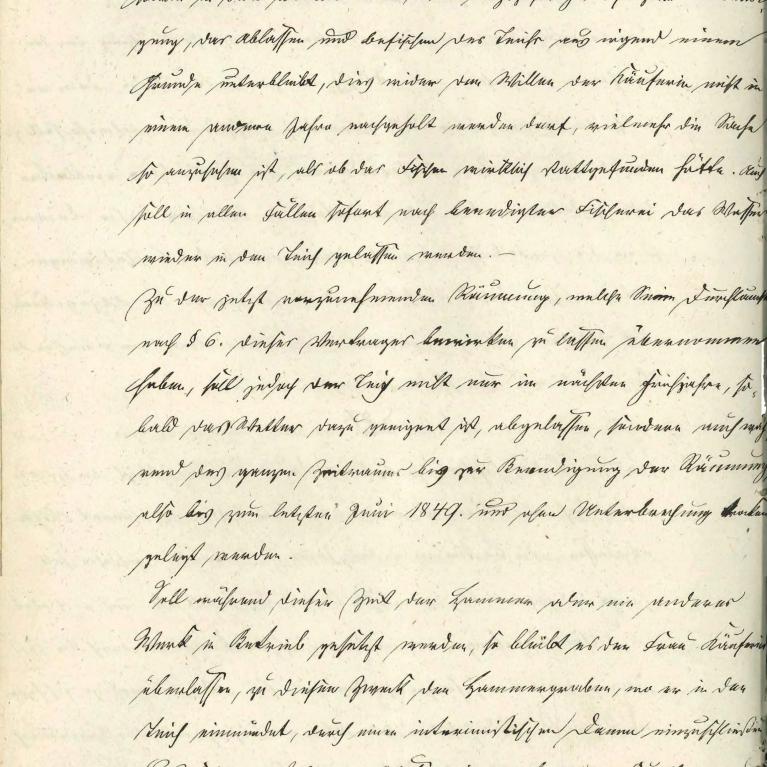 gung, das Ablassen und befischen des Teichs aus irgend einem
Grunde unterbleibt, dies wider den Willen der Käuferin nicht in
einem anderen Jahre nachgeholt werden darf, vielmehr die Sache
so anzusehen ist, als ob das Fischen wirklich stattgefunden hätte. Auch
soll in allen Fällen sofort nach beendigter Fischerei das Wasser
wieder in den Teich gelassen werden. —
Zu der jetzt vorzunehmenden Räumung, welche Seine Durchlaucht
nach § 6. dieses Vertrages bewirken zu lassen übernommen
haben, soll jedoch der Teich nicht nur im nächsten Frühjahre, so-
bald das Wetter dazu geeignet ist, abgelassen, sondern auch wäh
rend des ganzen Zeitraums bis zur Beendigung der Räumung
also bis zum letzten Juni 1849. und ohne Unterbrechung trocken
gelegt werden.
Soll während dieser Zeit der Hammer oder ein anderes
Werk in Betrieb gesetzt werden, so bleibt es der Frau Käuferin
überlassen, zu diesem Zweck den Hammergraben, wo er in den
Teich einmündet, durch einen interimistischen Damm einzuschließen